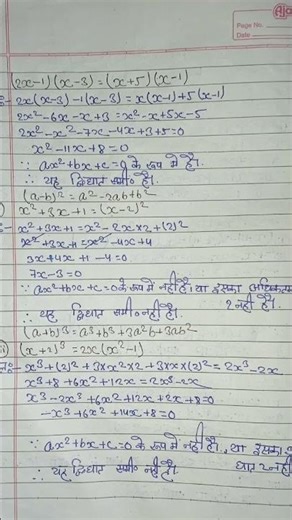 Page No.
Date
(2x-1)(x-3)=(x+5)(x-1)
2x(x-3)-1(x-3)=x(x-1)+5(x-1)
2x²-6x-x+3=x²-x+5x-5
2x²-x²-7x-4x+3+5=0
x²-11x+8=0
∵ ax²+bx+c=0 के रूप में है।
∴ यह द्विघात समी० है।
(a-b)²=a²-2ab+b²
x²+3x+1=(x-2)²
x²+3x+1=x²-2x×2+(2)²
x²+3x+1=x²-4x+4
3x+4x+1-4=0
7x-3=0
∵ ax²+bx+c=0 के रूप में नहीं है। या इसका अधिकतम
2 नहीं है।
∴ यह द्विघात समी० नहीं है।
(a+b)³=a³+b³+3a²b+3ab²
(x+2)³=2x(x²-1)
x³+(2)³+3×x²×2+3×x×(2)²=2x³-2x
x³+8+6x²+12x=2x³-2x
x³-2x³+6x²+12x+2x+8=0
-x³+6x²+14x+8=0
∵ ax²+bx+c=0 के रूप में नहीं है, या इसका
घात 2 नहीं
∴ यह द्विघात समी० नहीं है।